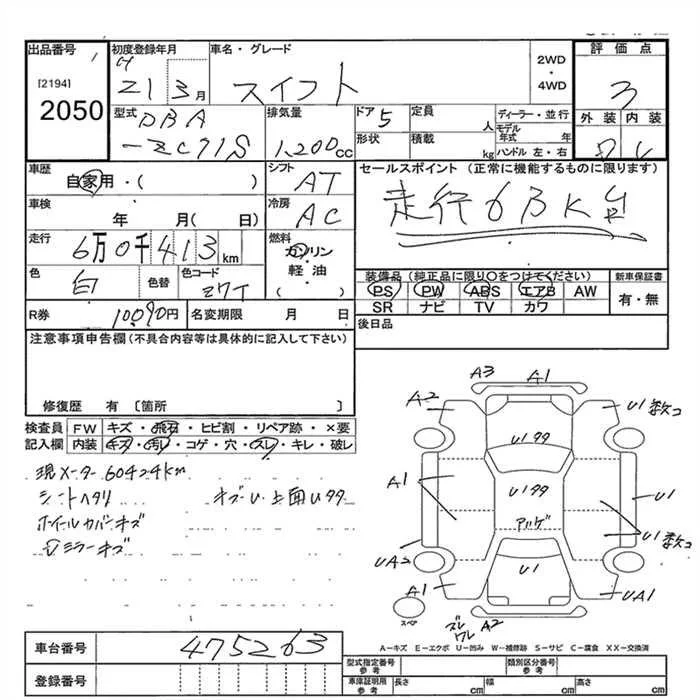 出品番号
[2194]
2050
初度登録年月
H
21 3月
車名・グレード
スイフト
2WD
・
4WD
評価点
3
外装 内装
型式
DBA
-ZC71S
排気量
1,200cc
ドア 5
定員 人
ディーラー・並行
モデル年式 年
形状
積載 kg
ハンドル 左・右
車歴
自家用・( )
シフト
AT
セールスポイント (正常に機能するものに限ります)
走行6万K台
車検
年 月( 日)
冷房
AC
走行
6万0千413km
燃料
ガソリン
軽・油
( )
色
白
色替
色コード
Z7T
装備品 (純正品に限り○をつけてください)
PS PW ABS エアB AW
SR ナビ TV カワ
新車保証書
有・無
R券
10,090円
名変期限 月 日
後日品
注意事項申告欄(不具合内容等は具体的に記入して下さい)
修復歴 有 〔箇所 〕
検査員
記入欄
FW キズ・飛石・ヒビ割・リペア跡・×要
内装 キズ・汚れ・コゲ・穴・スレ・キレ・破レ
現メーター60424km
シートヘタリ
ホイルカバーキズ
ミラーキズ
A3 A1
A2
U1数コ
U1タタ
A1
U1タタ
U1
アゲ
U1数コ
UA2
U1
A1
UA1
スペア
ズレ
ワレ
A2
A-キズ E-エクボ U-凹み W-補修跡 S-サビ C-腐食 XX-交換済
車台番号
475263
登録番号
型式指定番号
参考
類別区分番号
参考
車庫証明用
参考
長さ cm
幅 cm
高さ cm